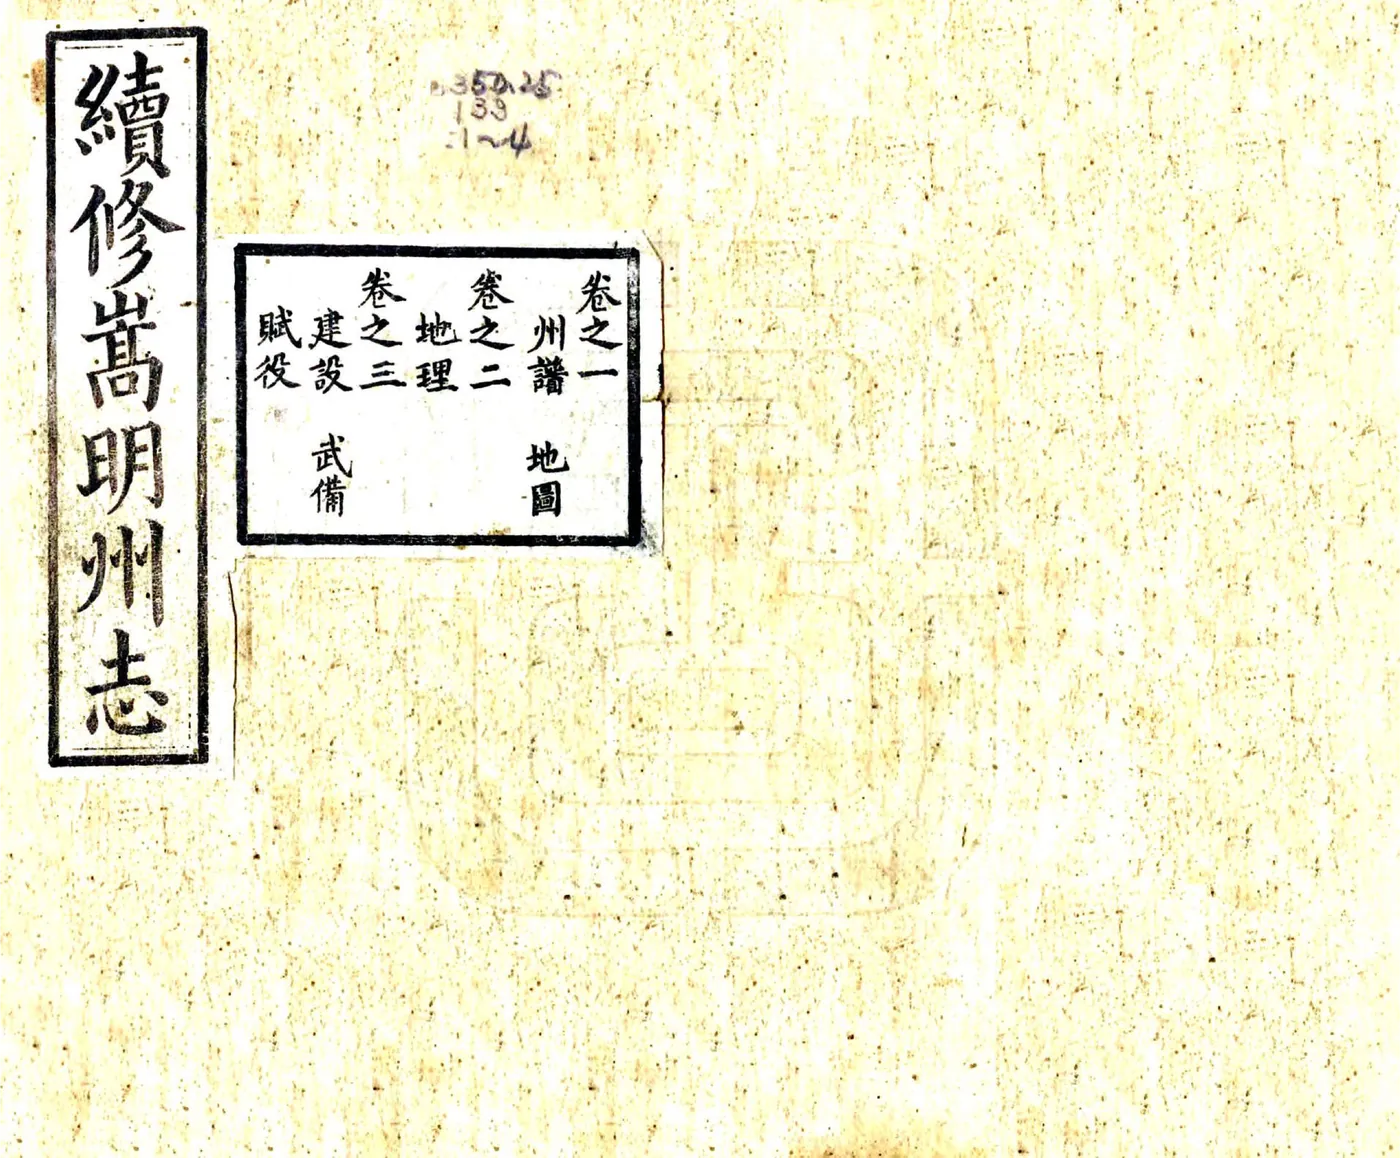 續修嵩明州志
350.25
133
:1~4
卷之一
州譜 地圖
卷之二
地理
卷之三
建設 武備
賦役